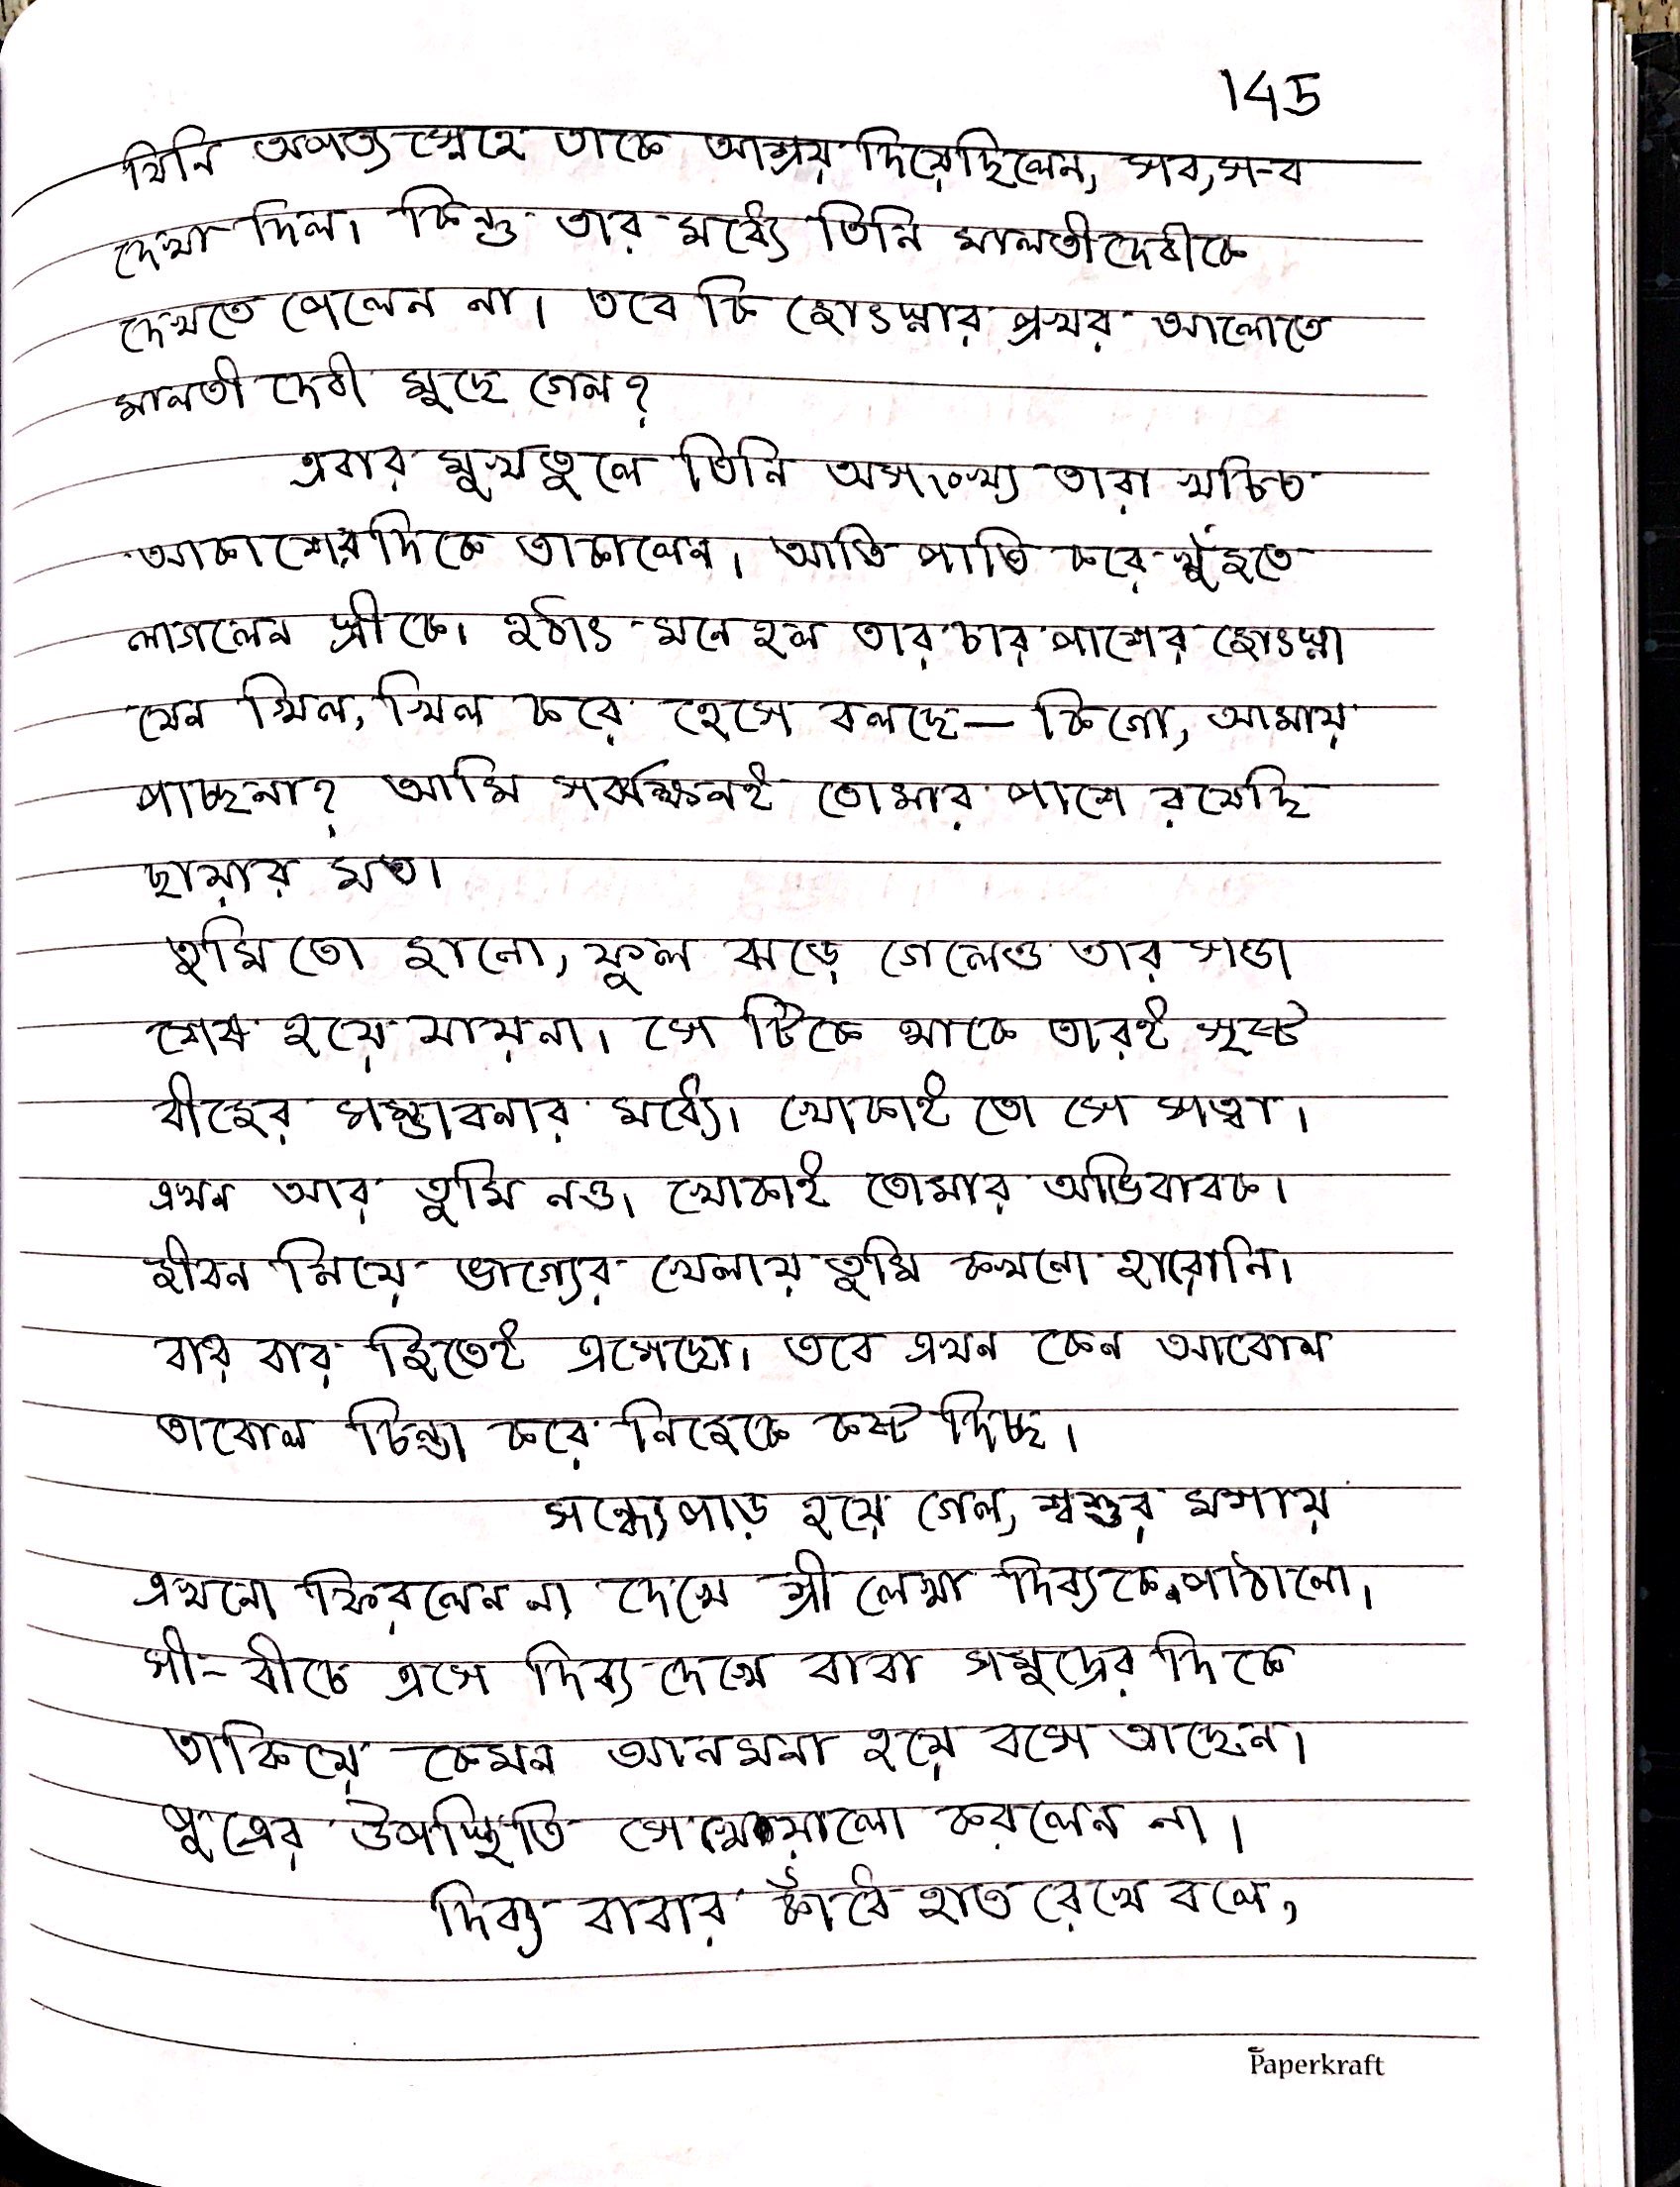 145
যিনি অপত্য স্নেহে তাকে আশ্রয় দিয়েছিলেন, সব, স-ব
দেখা দিল। কিন্তু তার মধ্যে তিনি মালতীদেবীকে
দেখতে পেলেন না। তবে কি জোৎস্নার প্রখর আলোতে
মালতী দেবী মুছে গেল?
এবার মুখতুলে তিনি অসংখ্য তারা খচিত
আকাশেরদিকে তাকালেন। আতি পাতি করে খুঁজতে
লাগলেন স্ত্রীকে। হঠাৎ মনে হল তার চার পাশের জোৎস্না
যেন খিল, খিল করে হেসে বলছে— কিগো, আমায়
পাচ্ছনা? আমি সর্বক্ষনই তোমার পাশে রয়েছি
ছায়ার মত।
তুমি তো জানো, ফুল ঝড়ে গেলেও তার সত্তা
শেষ হয়ে যায়না। সে টিকে থাকে তারই সৃষ্ট
বীজের সম্ভাবনার মধ্যে। খোকাই তো সে সত্বা।
এখন আর তুমি নও। খোকাই তোমার অভিবাবক।
জীবন নিয়ে ভাগ্যের খেলায় তুমি কখনো হারোনি।
বার বার জিতেই এসেছো। তবে এখন কেন আবোল
তাবোল চিন্তা করে নিজেকে কষ্ট দিচ্ছ।
সন্ধ্যেপাড় হয়ে গেল, শ্বশুর মশায়
এখনো ফিরলেন না দেখে শ্রীলেখা দিব্যকে পাঠালো।
সী-বীচে এসে দিব্য দেখে বাবা সমুদ্রের দিকে
তাকিয়ে কেমন আনমনা হয়ে বসে আছেন।
পুত্রের উপস্থিতি সে খেয়ালো করলেন না।
দিব্য বাবার কাঁধে হাত রেখে বলে,
Paperkraft